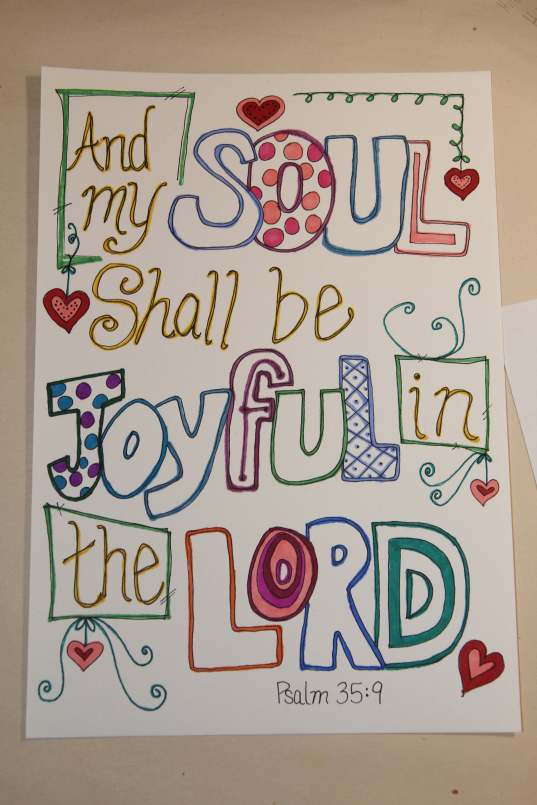 And
my SOUL
Shall be
Joyful in
the LORD
Psalm 35:9